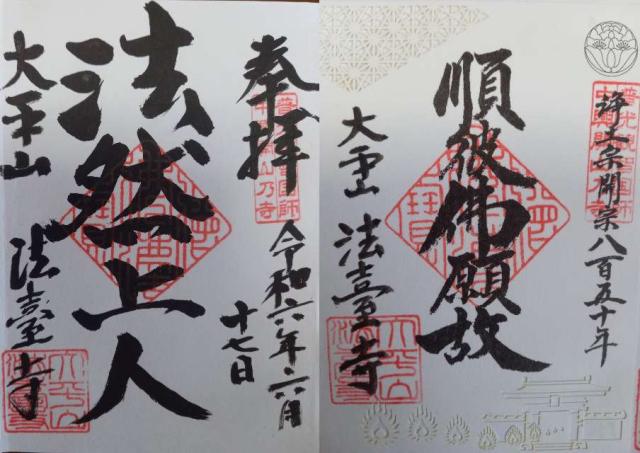 奉拝
令和六年六月
十七日
法然上人
大平山
法臺寺
浄土宗開宗八百五十年
順彼佛願故
大平山
法臺寺